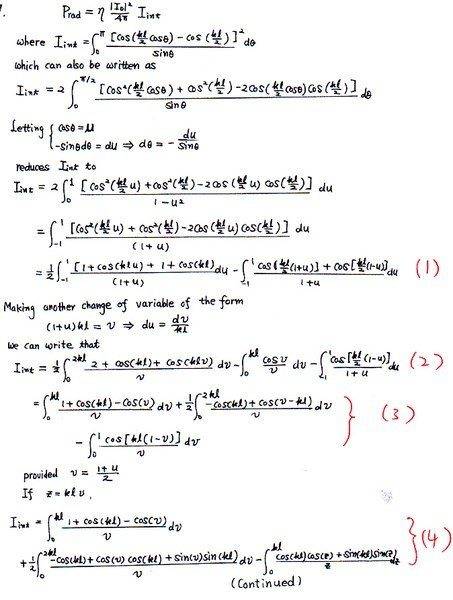 P_rad = η |I₀|²/4π I_int
where I_int = ∫₀^π [cos(kl/2 cosθ) - cos(kl/2)]²/sinθ dθ
which can also be written as
I_int = 2 ∫₀^{π/2} [cos²(kl/2 cosθ) + cos²(kl/2) - 2cos(kl/2 cosθ)cos(kl/2)]/sinθ dθ
Letting { cosθ = u
-sinθdθ = du ⇒ dθ = - du/sinθ
reduces I_int to
I_int = 2 ∫₀^1 [cos²(kl/2 u) + cos²(kl/2) - 2cos(kl/2 u) cos(kl/2)]/1-u² du
= ∫_{-1}^1 [cos²(kl/2 u) + cos²(kl/2) - 2cos(kl/2 u)cos(kl/2)]/(1+u) du
= 1/2 ∫_{-1}^1 [1 + cos(klu) + 1 + cos(kl)]/(1+u) du - ∫_{-1}^1 cos[kl/2(1+u)] + cos[kl/2(1-u)]/1+u du (1)
Making another change of variable of the form
(1+u)kl = v ⇒ du = dv/kl
we can write that
I_int = 1/2 ∫₀^{2kl} 2 + cos(kl) + cos(v-kl)/v dv - ∫₀^{kl} cosv/v dv - ∫_{-1}^1 cos[kl/2(1-u)]/1+u du (2)
= ∫₀^{kl} 1 + cos(kl) - cos(v)/v dv + 1/2 ∫₀^{2kl} -cos(kl) + cos(v-kl)/v dv
- ∫₀^1 cos[kl(1-v)]/v dv } (3)
provided v = 1+u/2
If z = klv,
I_int = ∫₀^{kl} 1 + cos(kl) - cos(v)/v dv
+ 1/2 ∫₀^{2kl} -cos(kl) + cos(v) cos(kl) + sin(v)sin(kl)/v dv - ∫₀^{kl} cos(kl)cos(z) + sin(kl)sin(z)/z dz } (4)
(Continued)